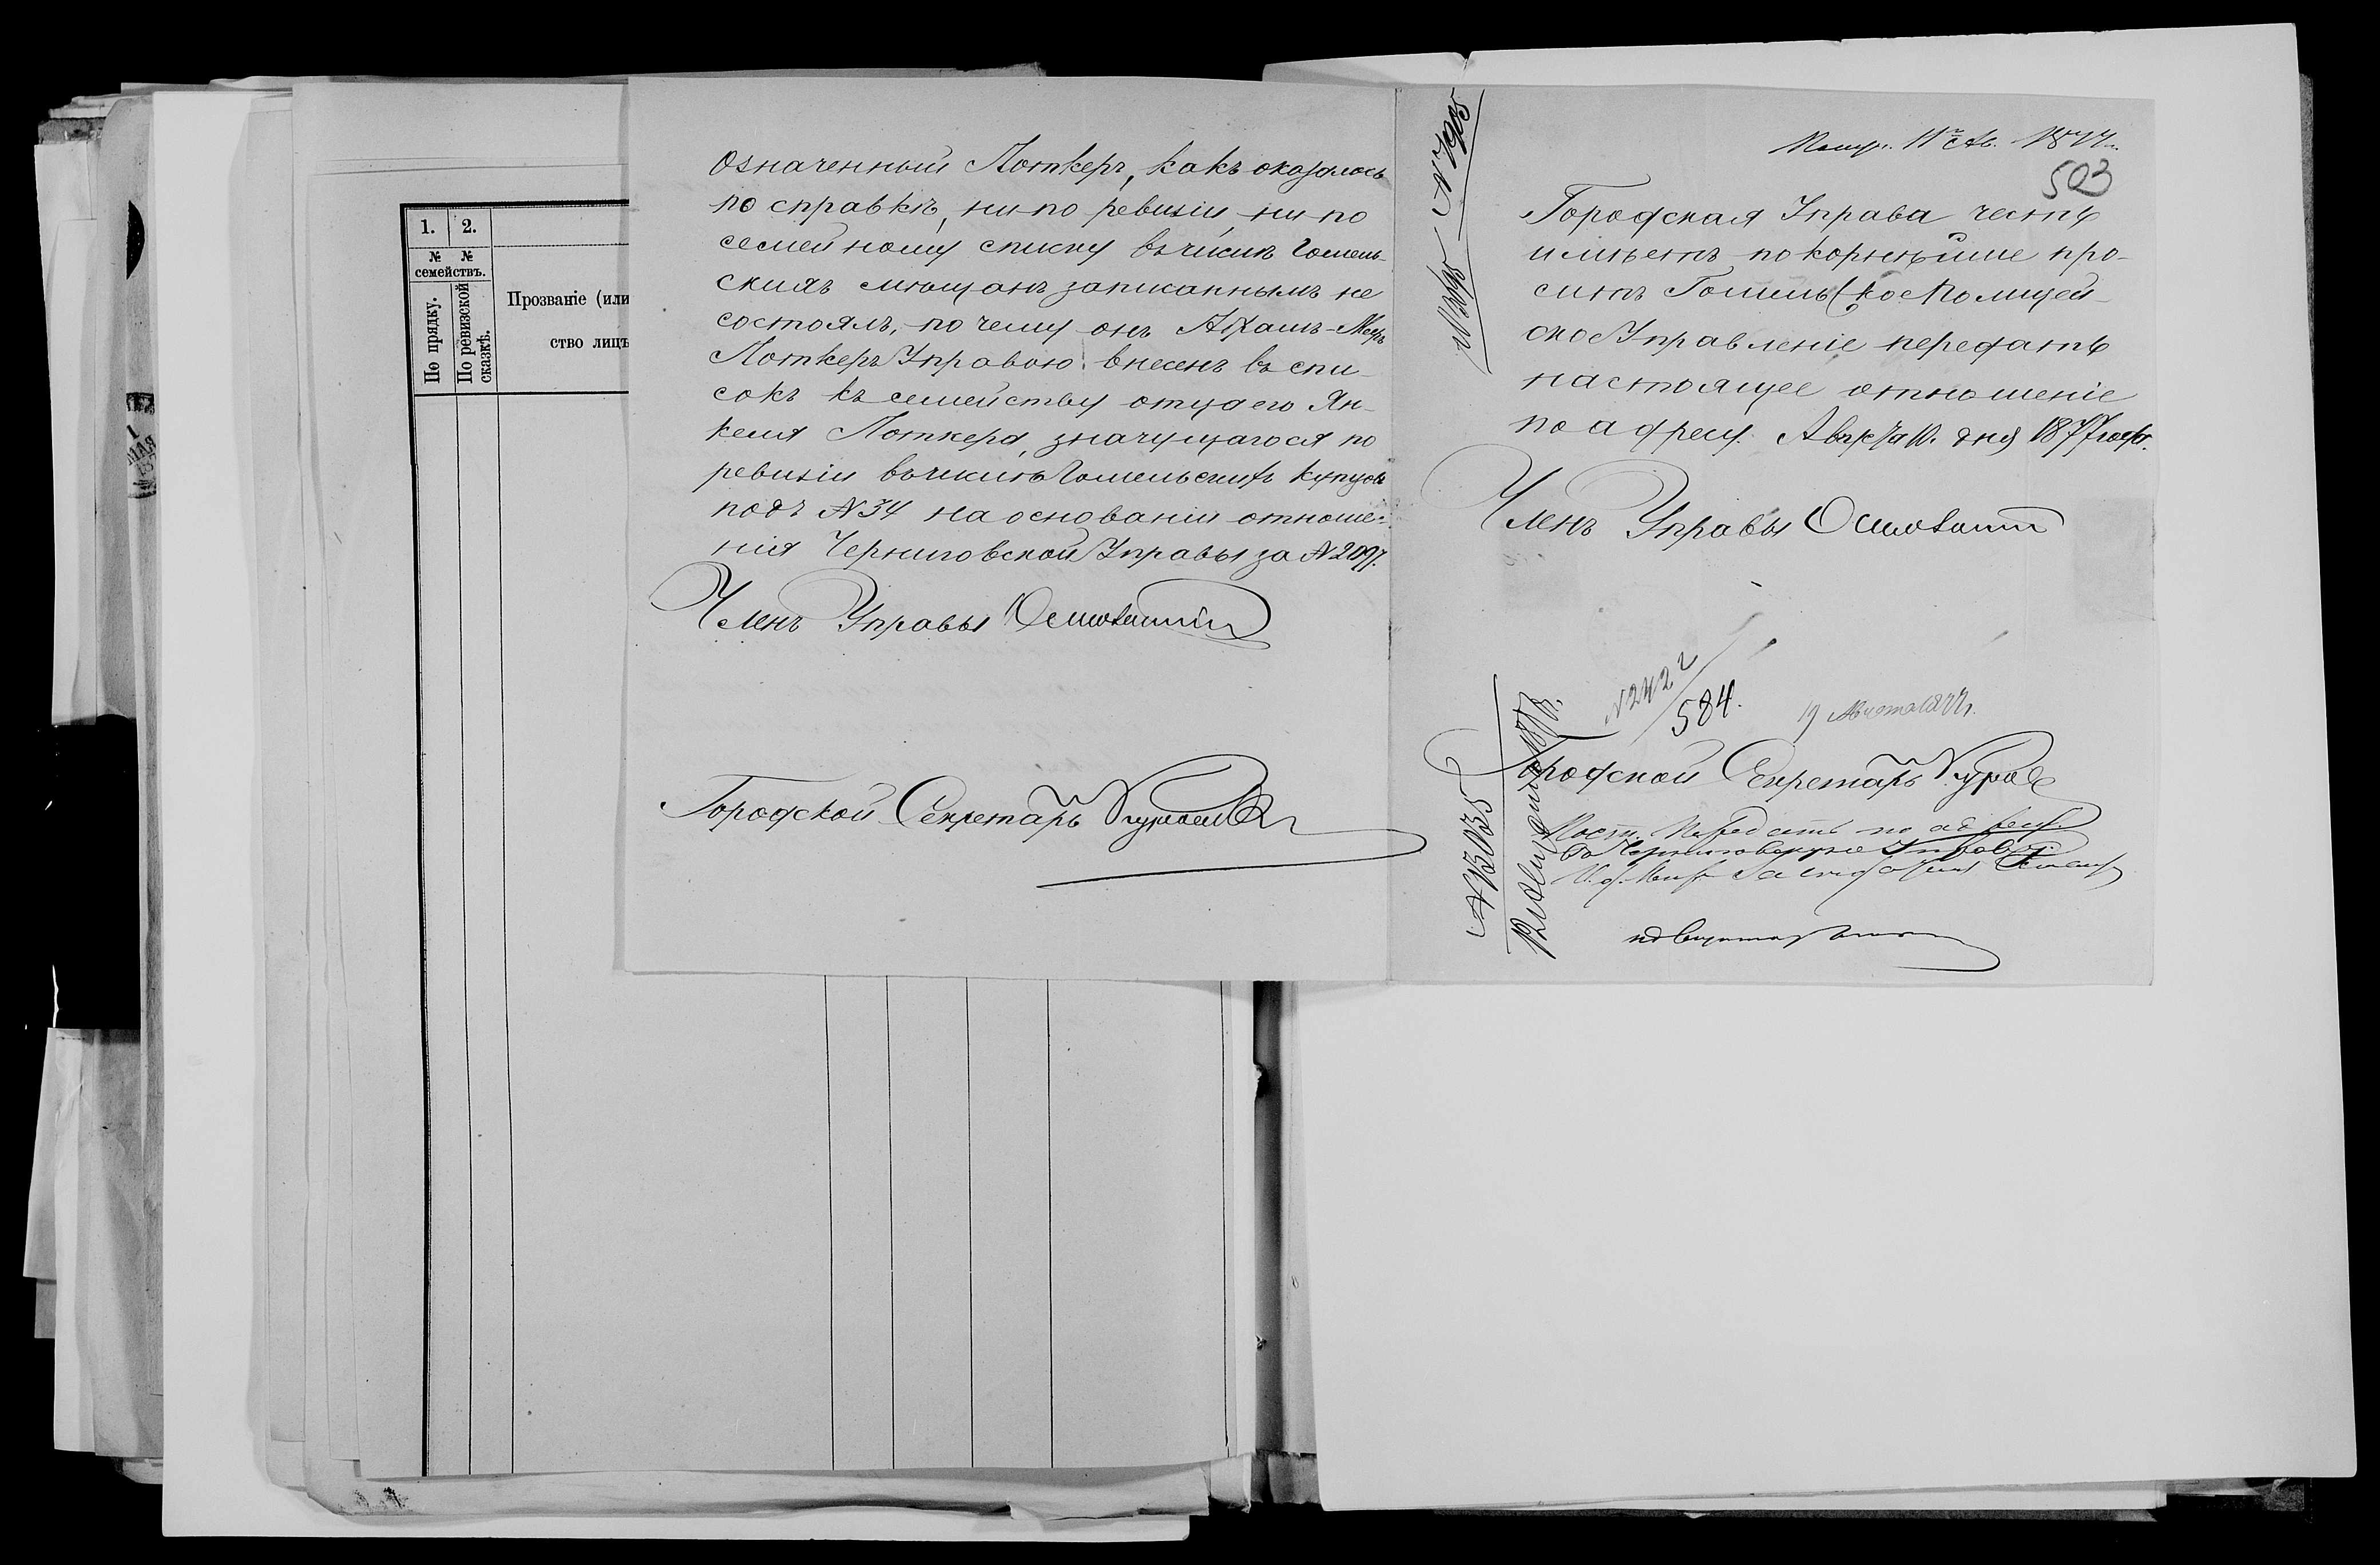 1. 2.
№ №
семействъ.
По прядку.
По ревизской
сказкѣ.
Прозваніе (или
ство лицъ
Означенный Лоткеръ, какъ оказалось
по справкѣ, ни по ревизіи ни по
семейному списку въ числѣ Гомель-
скихъ мѣщанъ записаннымъ не
состоялъ, по чему онъ Абрамъ-Мееръ
Лоткеръ Управою внесенъ въ спи-
сокъ къ семейству отца его Ян-
келя Лоткера, значущагося по
ревизіи въ числѣ Гомельскихъ купцовъ
подъ № 34 на основаніи отноше-
нія Черниговской Управы за № 2097.
Членъ Управы
Городской Секретарь
11 Ав. 1877 г.
503
Городская Управа честь
имѣетъ покорнѣйше про-
ситъ Гомельское Полицей-
ское Управленіе передать
настоящее отношеніе
по адресу. Августа 10 дня 1877 года.
Членъ Управы
№ 2422
584.
19 Августа 1877 г.
Городской Секретарь
Передать по адресу
въ Черниговскую Управу
№ 13035
1877 г.